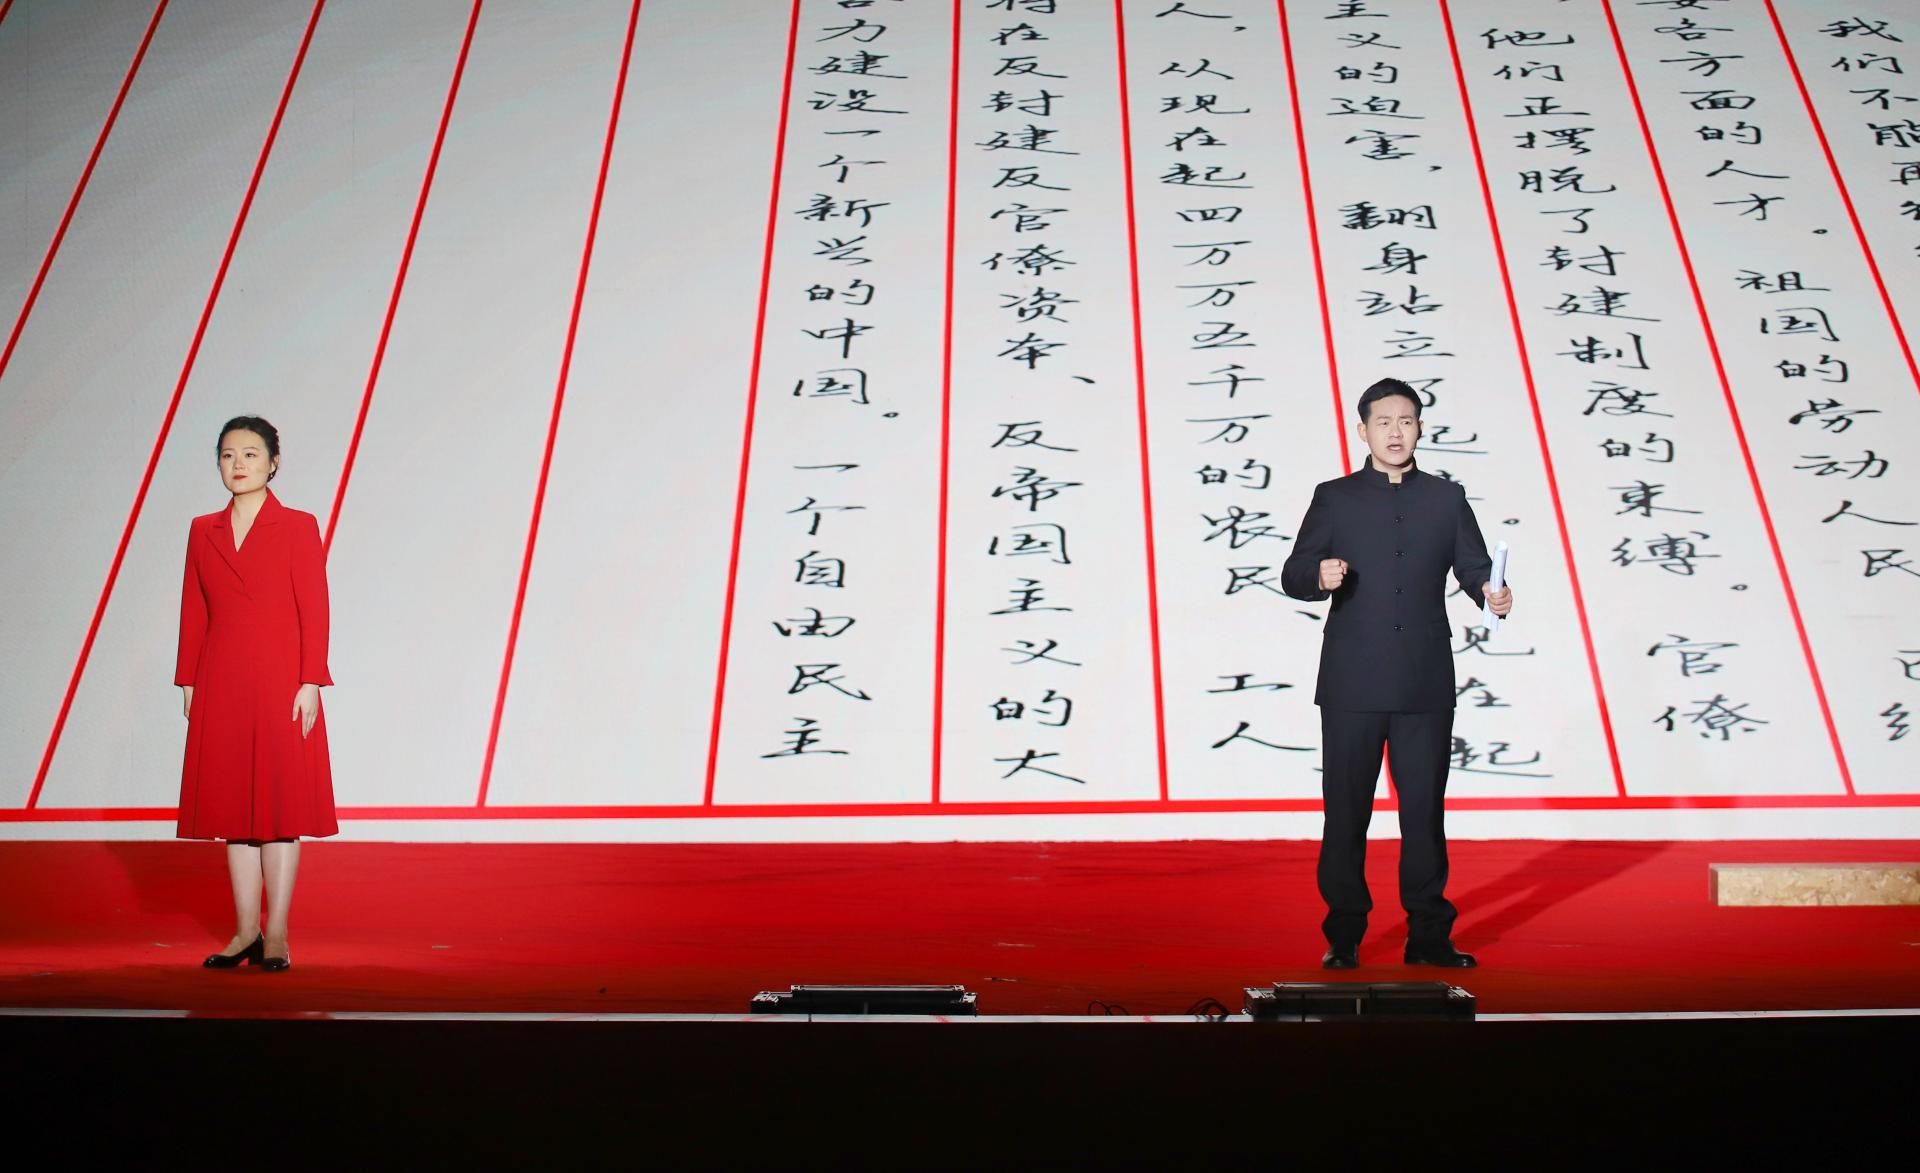 我们不能再
各方面的人才。祖国的劳动人民已经
他们正摆脱了封建制度的束缚。官僚
主义的迫害，翻身站立了起。在起
人，从现在起四万万五千万的农民、工人
在反封建反官僚资本、反帝国主义的大
力建设一个新兴的中国。一个自由民主